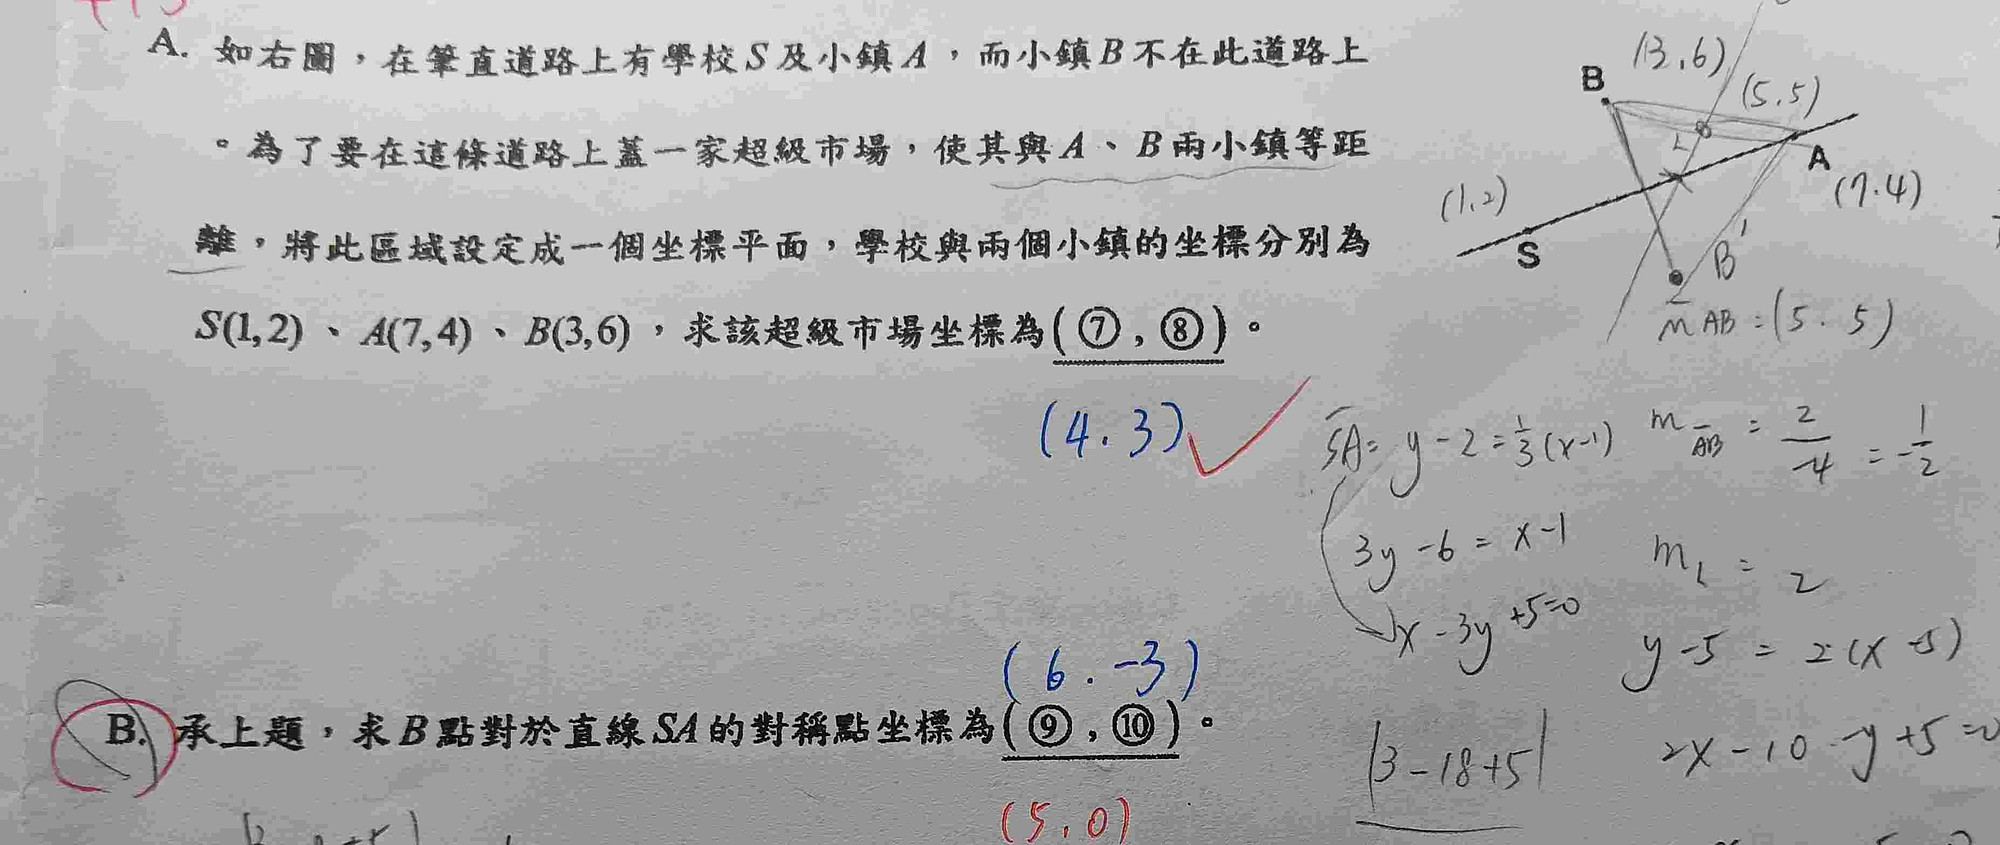 A. 如右圖，在筆直道路上有學校S及小鎮A，而小鎮B不在此道路上
。為了要在這條道路上蓋一家超級市場，使其與A、B兩小鎮等距
離，將此區域設定成一個坐標平面，學校與兩個小鎮的坐標分別為
S(1,2)、A(7,4)、B(3,6)，求該超級市場坐標為(⑦,⑧)。
(4.3)
B (3,6)
(5,5)
L
A
(7.4)
(1,2)
S
B'
M AB = (5. 5)
SA = y-2=1/3(x-1)
3y-6=x-1
x-3y+5=0
m AB = 2/-4 = -1/2
m L = 2
y-5 = 2(x-5)
2x-10-y+5=0
|3-18+5|
(6.-3)
B. 承上題，求B點對於直線SA的對稱點坐標為(⑨,⑩)。
(5,0)